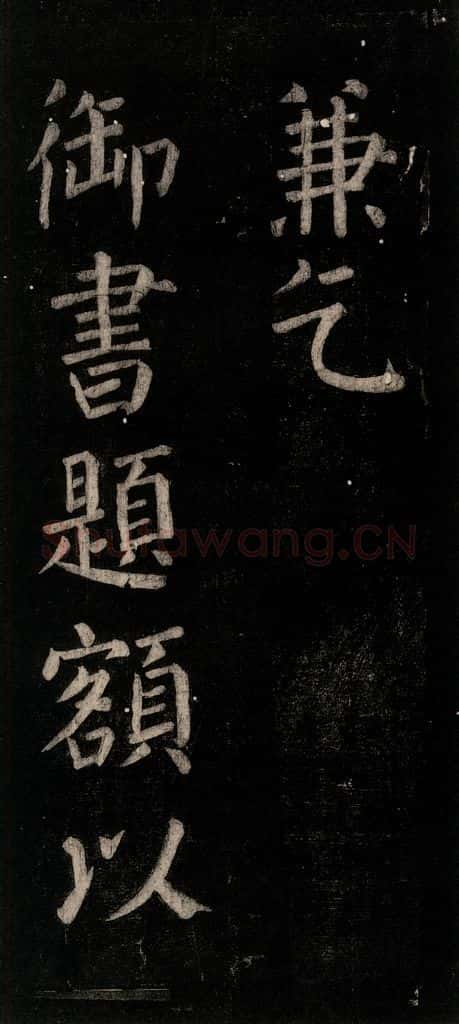 兼乞
御書題額以
shufawang.CN